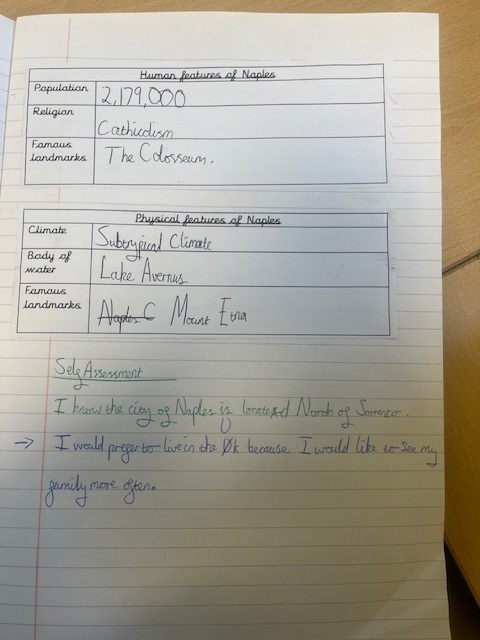 Human features of Naples
Population 2,179,000
Religion Cathicdism
Famous landmarks The Colosseum.
Physical features of Naples
Climate Subtrypical Climate
Body of water Lake Avernus
Famous landmarks Naples C Mount Etna
Self Assessment
I know the city of Naples is located North of Sorrento.
→ I would prefer to live in the Uk because I would like to see my
family more often.